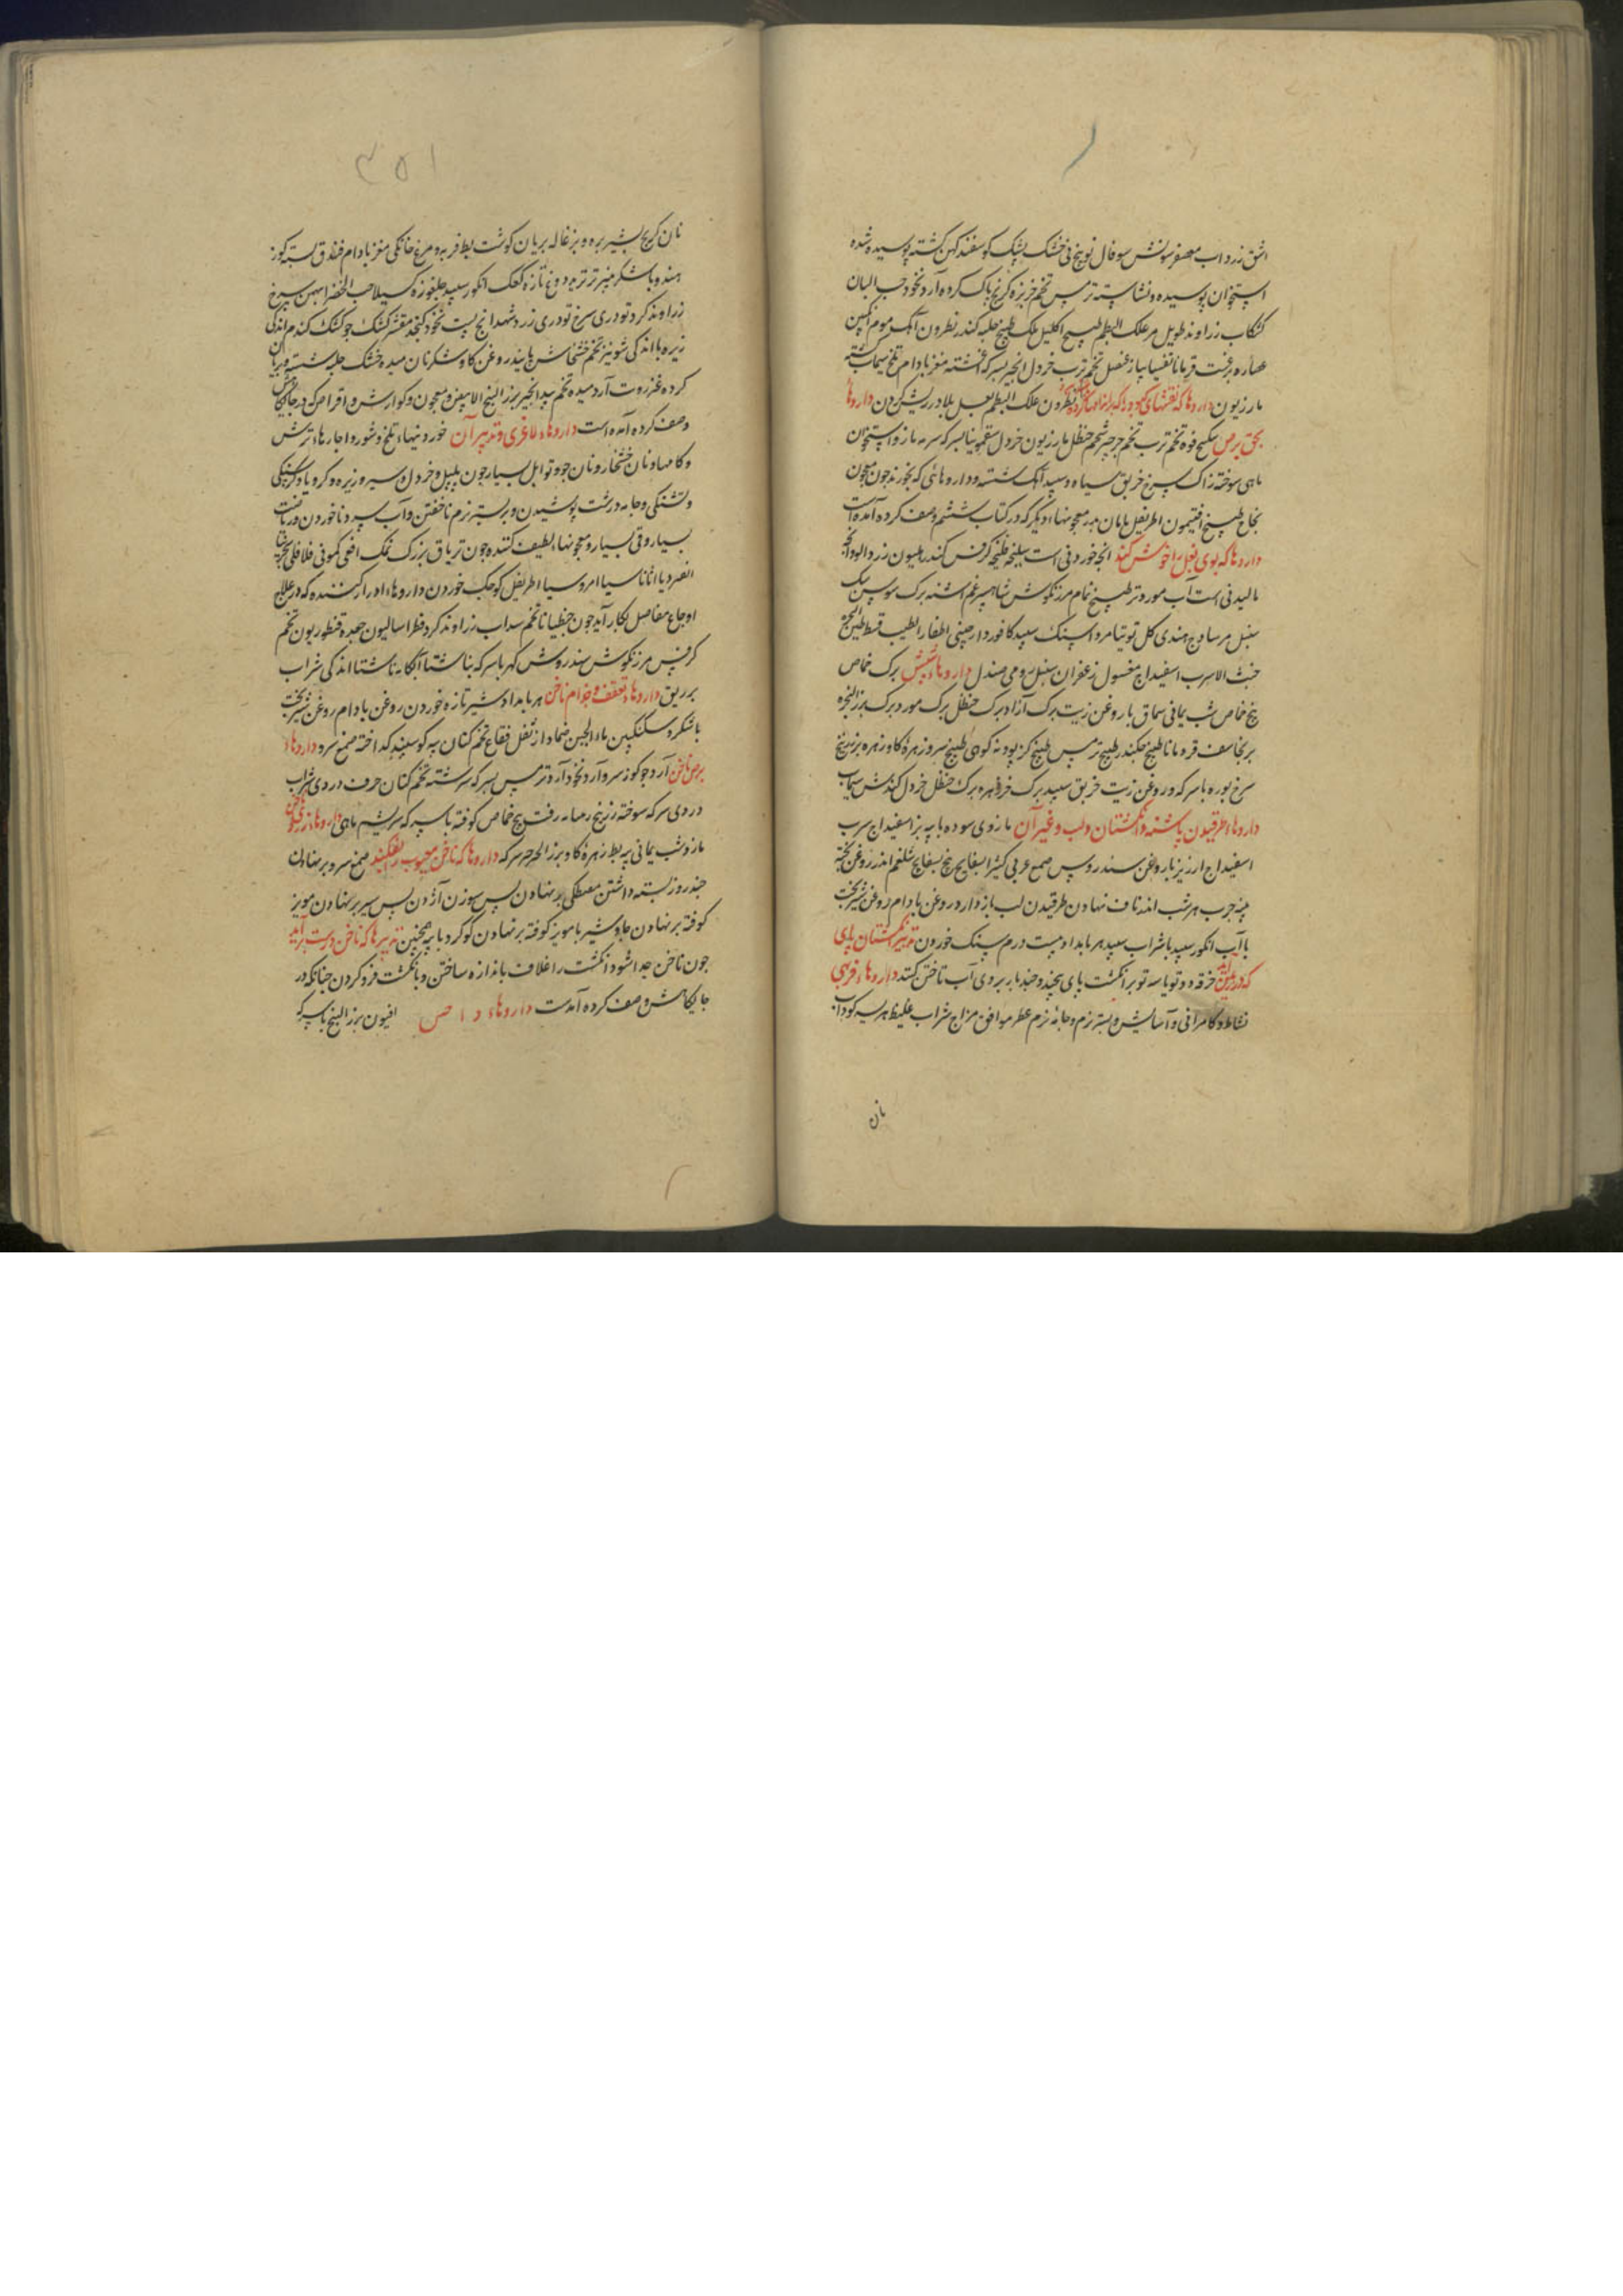 اشق زرداب معصفر سونش سوفال نو بیخ نی خشک پشک کوسفند کهن کشته پوسیده شده
استخوان پوسیده و نشاسته ترمس تخم خربزه کرنج پاک کرده آرد نخود حب البان
کشکاب زراوند طویل مر علک البطم طبیخ اکلیل ملک طبیخ حلبه کندر نطرون آهک موم انکبین
عصاره برغست قردمانا تفسیا پیاز عنصل تخم ترب خردل انجیر بسرکه اغشته مغز بادام تلخ سیماب کشته
مازریون داروها که نقشهای کبود را که بر اندامها کرده نطرون علک البطم بعسل بلادر ریش کردن داروها
بهق برص سکبینج فوه تخم ترب تخم جرجیر شحم حنظل مازریون خردل سقمونیا بسرکه سرمه مازو استخوان
ماهی سوخته زاک سرخ خربق سیاه و سپید آهک شسته و داروهائی که بخورند چون معجون
نجاح طبیخ افتیمون اطریفل مامان مد معجونهاء دیکر که در کتاب ششم وصف کرده آمده است
داروها که بوی بغل را خوش کند انچه خوردنی است سلیخه کرفس کندر هلیون زردالو وانچه
مالیدنی است آب مورد تر طبیخ نمام مرزنکوش شاهسپرغم اشنه برک سوسن سک
سنبل مر ساذج هندی کل توتیا مرداسنک سپید کافور دارچینی اظفار الطیب قسط
خبث الاسرب اسفیداج مغسول زعفران سنبل رومی صندل داروهاء شپش برک خماض
بیخ خماض شب یمانی سماق با روغن زیت برک آزاد برک حنظل برک مورد برک
برنجاسف قردمانا طبیخ جلکند طبیخ ترمس طبیخ کز پودنه کوهی طبیخ سرو زهره کاو زهره بز زرنیخ
سرخ بوره با سرکه و روغن زیت خربق سپید برک خرزهره برک حنظل خردل کندش سیماب
داروهاء طرقیدن پاشنه و انکشتان و لب و غیر آن مازوی سوده با پیه بز اسفیداج سرب
اسفیداج ارزیز با روغن سندروس صمغ عربی کثیرا بسفایج بیخ بسفایج شلغم اندر روغن پخته
پیه چرب هر شب اندر ناف نهادن طرقیدن لب باز دارد روغن بادام روغن شیربخت
با آب انکور سپید با شراب سپید هر بامداد بیست درم سنک خوردن تدبیر انکشتان پای
که در خرقه دو تو یا سه تو بر انکشت پای پیچند و چند بار بر وی آب تاختن کنند داروهاء فربهی
نشاط و کامرانی و آسایش و بستر نرم و جامه نرم عطر موافق مزاج شراب غلیظ هریسه کوداب
نان
۳۵۱
نان کرنج بشیر بره و بزغاله بریان کوشت بط فربه و مرغ خانکی مغز بادام فندق پسته کوز
هندو با شکر پنیر تر ترید دوغ تازه کعک انکور سپید جلغوزه کسیلا حب الخضرا بهمن سرخ
زراوند کرد تودری سرخ تودری زرد شهدانج پست نخود کنجد مقشر کشک جو کشک کندم اندکی
زیره با اندکی شونیز تخم خشخاش هلیله در روغن کاو شکر نان میده خشک حلبه شسته و بریان
کرده عنزروت آرد میده تخم بیدانجیر بزر البنج الابیض و معجون و کوارش و اقراص که در جایکاهش
وصف کرده آمده است داروهاء لاغری و تدبیر آن خوردنیهاء تلخ و شور و اچارهاء ترش
و کامها و نان خشخار و نان جو و توابل بسیار چون پلپل و خردل و سیر و زیره و کرویا و کرسنکی
و تشنکی و جامه درشت پوشیدن و بر بستر نرم ناخفتن و آب سرد ناخوردن و ریاضت
بسیار و قی بسیار و معجونهاء لطیف کننده چون تریاق بزرک نمک افعی کمونی فلافلی
انقردیا اثاناسیا امروسیا اطریفل کوچک خوردن داروهاء ادرار کننده که در علاج
اوجاع مفاصل بکار آید چون جنطیانا تخم سداب زراوند کرد فطراسالیون جعده قنطوریون تخم
کرفس مرزنکوش سندروس کهربا سرکه بناشتا آبکامه ناشتا اندکی شراب
بر ریق داروهاء تعقف و جذام ناخن هر بامداد شیر تازه خوردن روغن بادام روغن شیربخت
با شکر و سکنکبین ماء الجبن ضماد از ثفل فقاع تخم کتان پیه کوسفند کداخته صمغ سرو داروهاء
برص ناخن آرد جو کوز سرو آرد نخود آرد ترمس بسرکه سرشته تخم کتان حرف دردی شراب
دردی سرکه سوخته زرنیخ زفت بیخ خماض کوفته با سرکه سریشم ماهی داروهاء زردی ناخن
مازو شب یمانی پیه بط زهره کاو بزر الجرجیر سرکه داروها که ناخن معیوب را بفکند صمغ سرو بر نهادن
چند روز بسته داشتن مصطکی بر نهادن پس سوزن آژدن پس سیر بر نهادن مویز
کوفته بر نهادن جاوشیر با مویز کوفته بر نهادن کوکرد با پیه همچنین تدبیرها که ناخن درست برآید
چون ناخن جدا شود انکشت را غلاف باندازه ساختن و بانکشت فرو کردن چنانکه در
جایکاهش وصف کرده آمدست داروهاء داحس افیون بزر البنج با سرکه